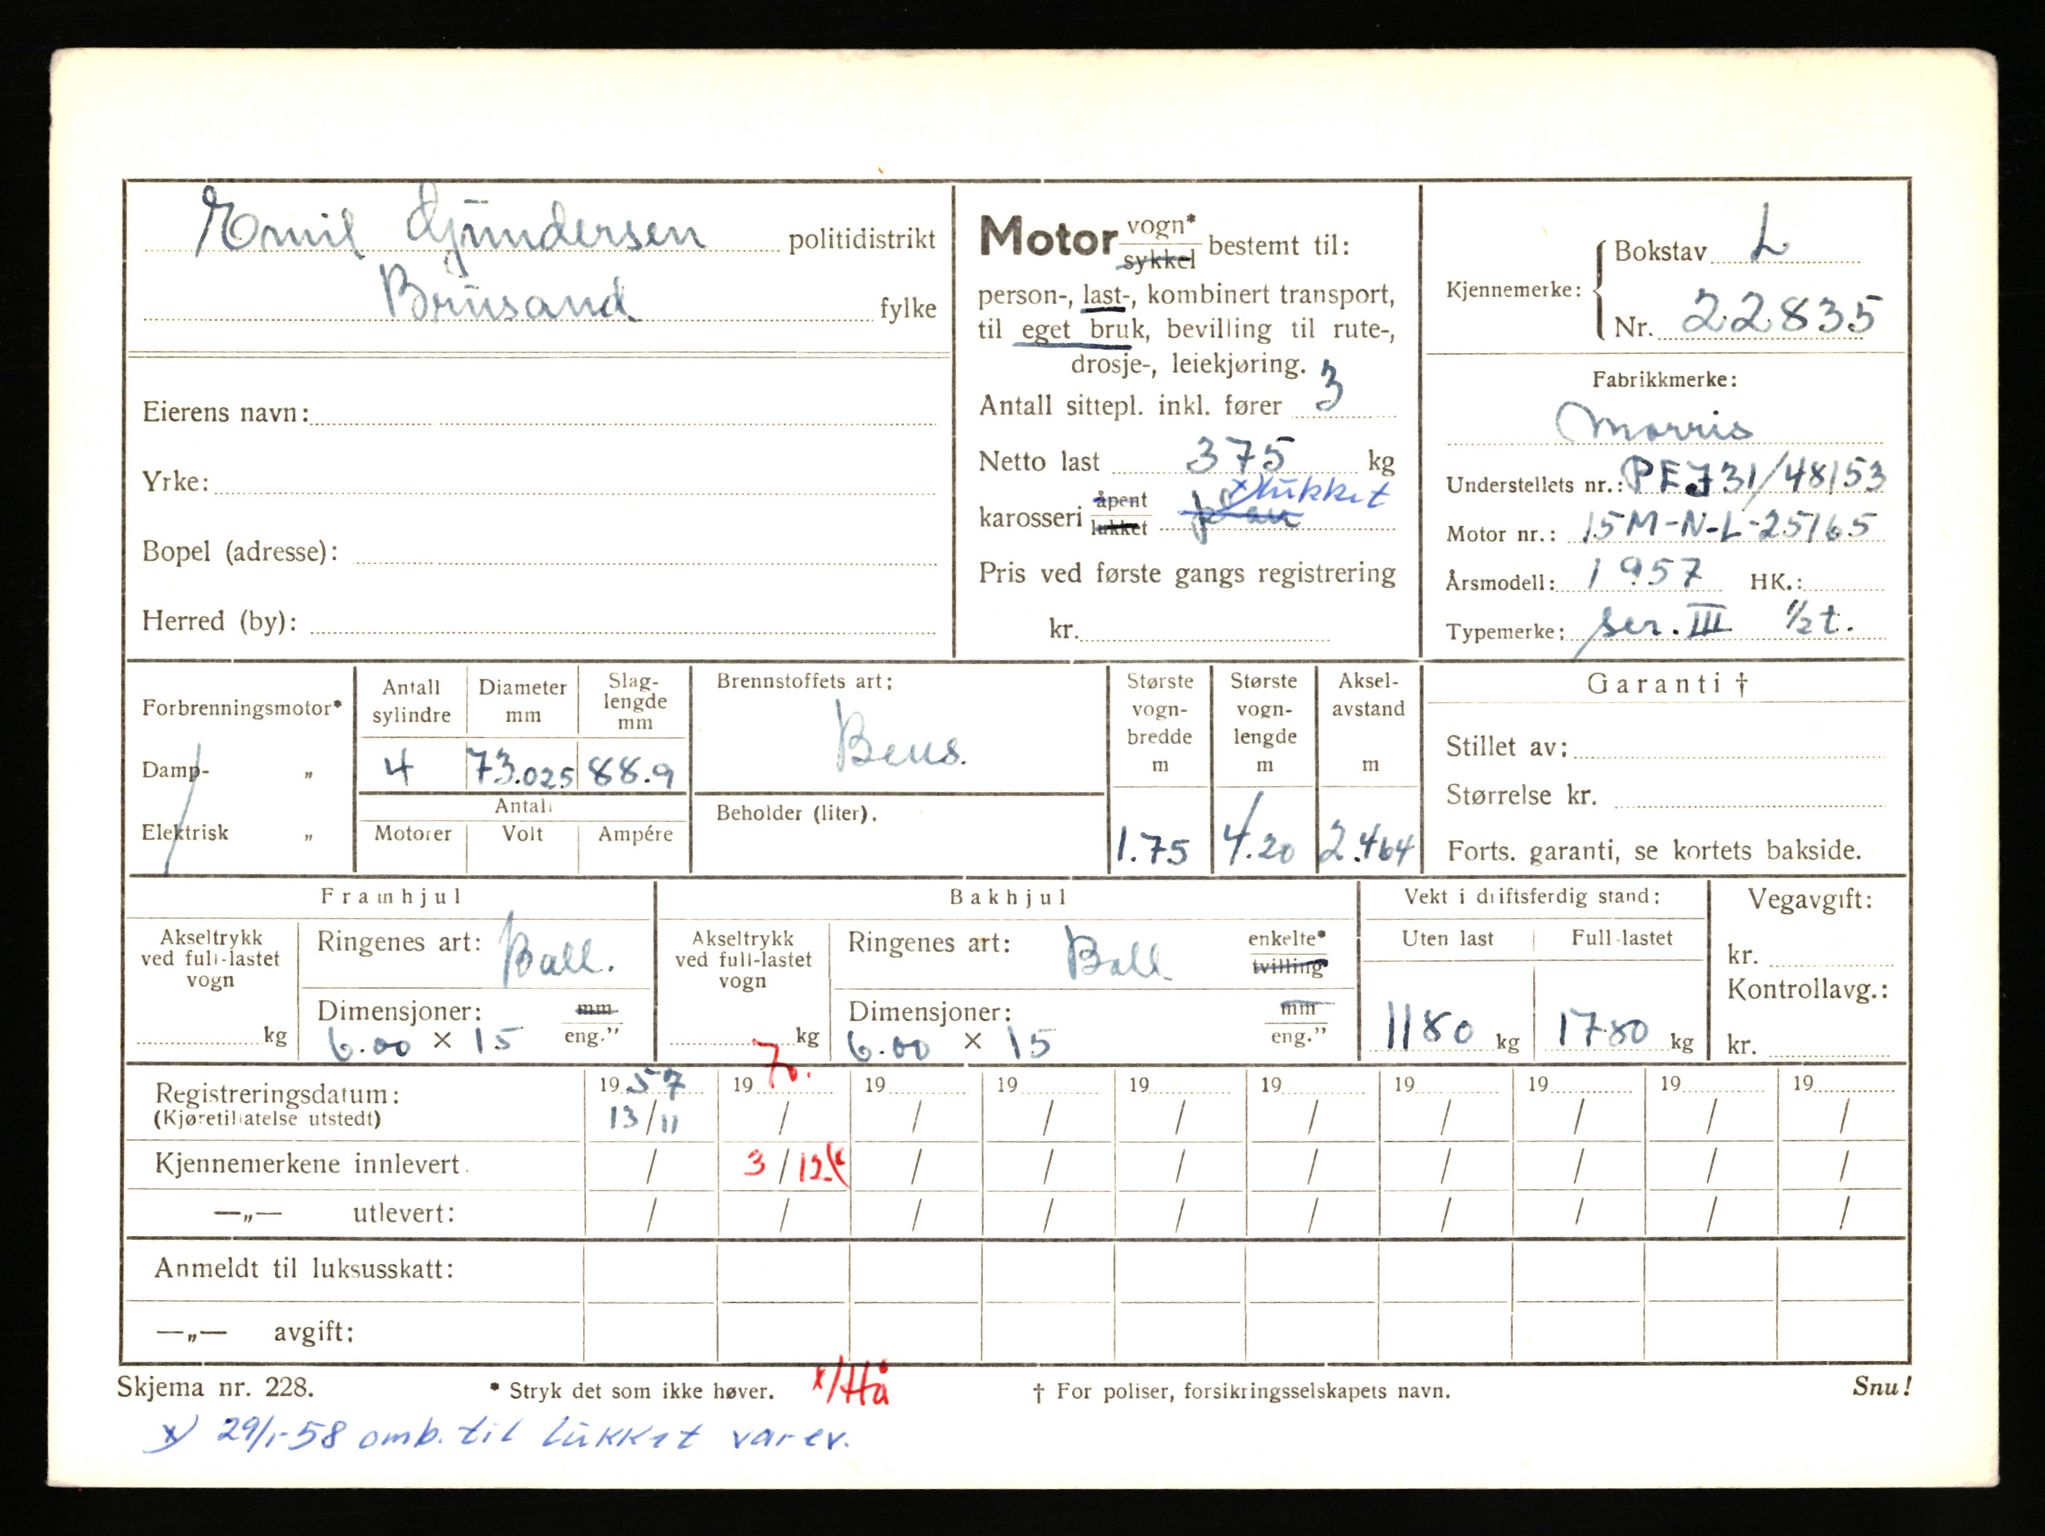 Emil Gundersen politidistrikt
Brusand fylke
Eierens navn:
Yrke:
Bopel (adresse):
Herred (by):
Motor vogn* sykkel bestemt til:
person-, last-, kombinert transport,
til eget bruk, bevilling til rute-,
drosje-, leiekjøring.
Antall sittepl. inkl. fører 3
Netto last 375 kg
x) lukket
karosseri åpent lukket
Pris ved første gangs registrering
kr.
Kjennemerke: Bokstav L
Nr. 22835
Fabrikkmerke:
Morris
Understellets nr.: PEJ31/48153
Motor nr.: 15M-N-L-25165
Årsmodell: 1957 HK.:
Typemerke: ser. III 1/2 t.
Forbrenningsmotor*
Damp- „
Elektrisk „
Antall sylindre Diameter mm Slag-lengde mm
4 73.025 88.9
Antall
Motorer Volt Ampére
Brennstoffets art:
Bens.
Beholder (liter).
Største vogn-bredde m
1.75
Største vogn-lengde m
4.20
Aksel-avstand m
2.464
Garanti †
Stillet av:
Størrelse kr.
Forts. garanti, se kortets bakside.
Framhjul
Akseltrykk
ved full-lastet
vogn
kg
Ringenes art: Ball.
Dimensjoner: mm
6.00 × 15 eng."
Bakhjul
Akseltrykk
ved full-lastet
vogn
kg
Ringenes art: Ball enkelte* tvilling
Dimensjoner: mm
6.00 × 15 eng."
Vekt i driftsferdig stand:
Uten last Full-lastet
1180 kg 1780 kg
Vegavgift:
kr.
Kontrollavg.:
kr.
Registreringsdatum: 19 57 19 70. 19 19 19 19 19 19 19 19
(Kjøretillatelse utstedt) 13/11 / / / / / / / / /
Kjennemerkene innlevert. / 3/12 x / / / / / / / /
—„— utlevert: / / / / / / / / / /
Anmeldt til luksusskatt:
—„— avgift:
Skjema nr. 228. * Stryk det som ikke høver. x/Hå † For poliser, forsikringsselskapets navn. Snu!
x) 29/1-58 omb. til lukket varev.